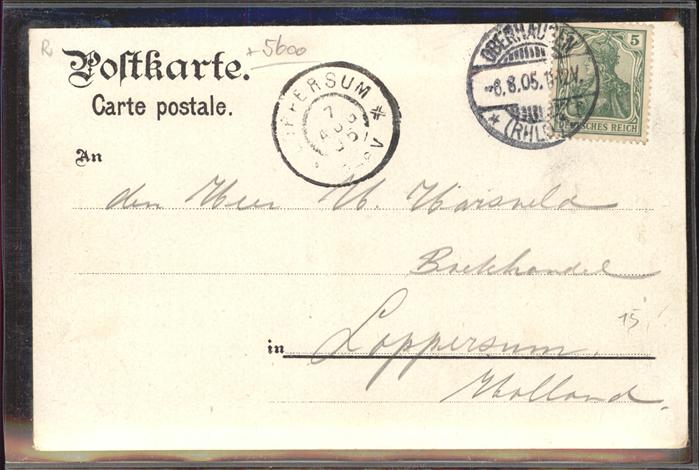 R
+ 5600
Postkarte.
Carte postale.
LOPPERSUM *
7
OBERHAUSEN
-6.8.05.11-12V.
* (RHLD.) *
5
DEUTSCHES REICH
An
den Heer H. Harsveld
Boekhandel
15
in Loppersum.
Holland.